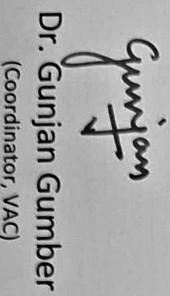 Gunjan
Dr. Gunjan Gumber
(Coordinator, VAC)